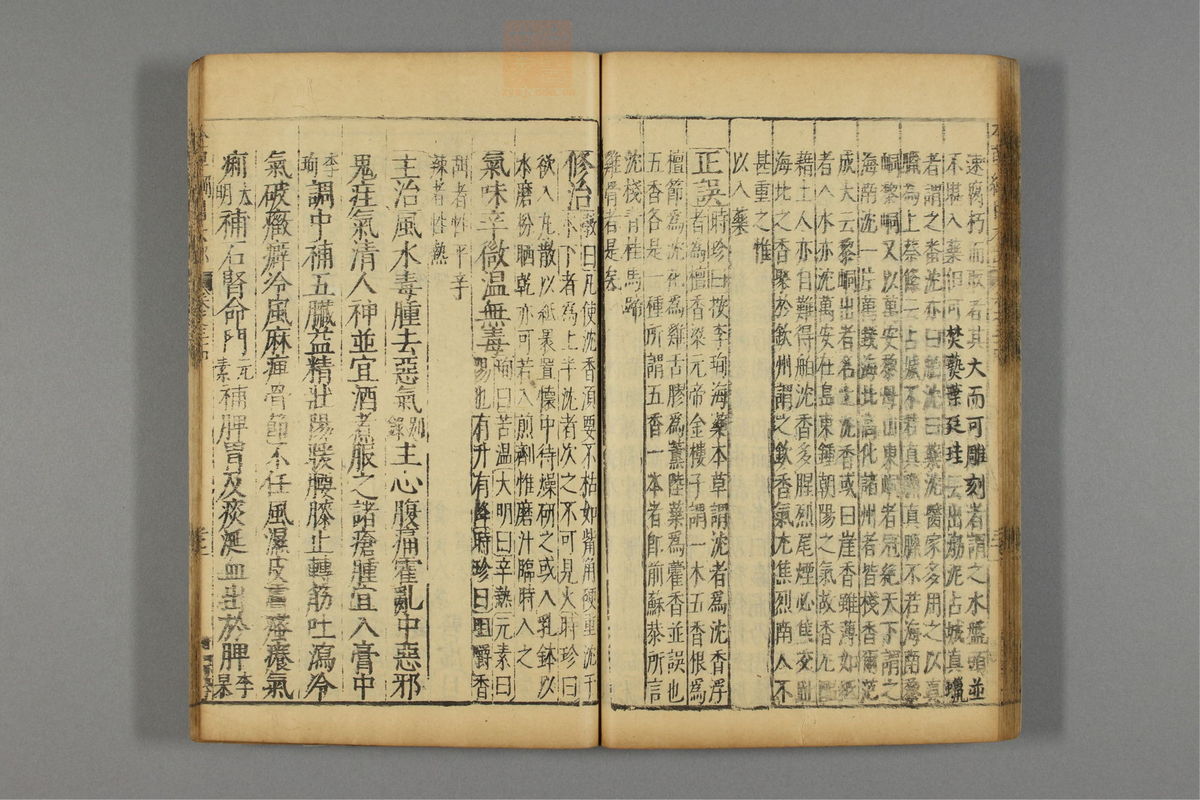 速腐朽而取者其大而可雕刻者謂之水盤頭並
不堪入藥但可焚爇葉廷珪云出渤泥占城真臘
者謂之番沈亦曰舶沈曰藥沈醫家多用之以真
臘為上蔡絛云占城不若真臘真臘不若海南黎
峒黎峒又以萬安黎母山東峒者冠絶天下謂之
海南沈一片萬錢海北高化諸州者皆棧香爾范
成大云黎峒出者名土沈香或曰崖香雖薄如紙
者入水亦沈萬安在島東鍾朝陽之氣故香尤
藉土人自難得舶沈香多腥烈尾煙必焦交趾
海北之香聚於欽州謂之欽香氣尤焦烈南人不
甚重之惟
以入藥
正誤時珍曰按李珣海藥本草謂沈者為沈香浮
者為檀香梁元帝金樓子謂一木五香根為
檀節為沈花為雞舌膠為薰陸葉為藿香並誤也
五香各是一種所謂五香一本者即前蘇恭所言
沈棧青桂馬蹄
雞骨者是矣
修治斆曰凡使沈香須要不枯如觜角硬重沈于
水下者為上半沈者次之不可見火時珍曰
欲入丸散以紙裹置懷中待燥研之或入乳鉢以
水磨粉晒乾亦可若入煎劑惟磨汁臨時入之
氣味辛微温無毒珣曰苦温大明曰辛熱元素曰
陽也有升有降時珍曰咀嚼香
甜者性平辛
辣者性熱
主治風水毒腫去惡氣别録主心腹痛霍亂中惡邪
鬼疰氣清人神並宜酒煮服之諸瘡腫宜入膏中
李珣調中補五臟益精壯陽暖腰膝止轉筋吐瀉冷
氣破癥癖冷風麻痺骨節不任風濕皮膚瘙癢氣
痢大明補右腎命門元素補脾胃及痰涎血出於脾李杲